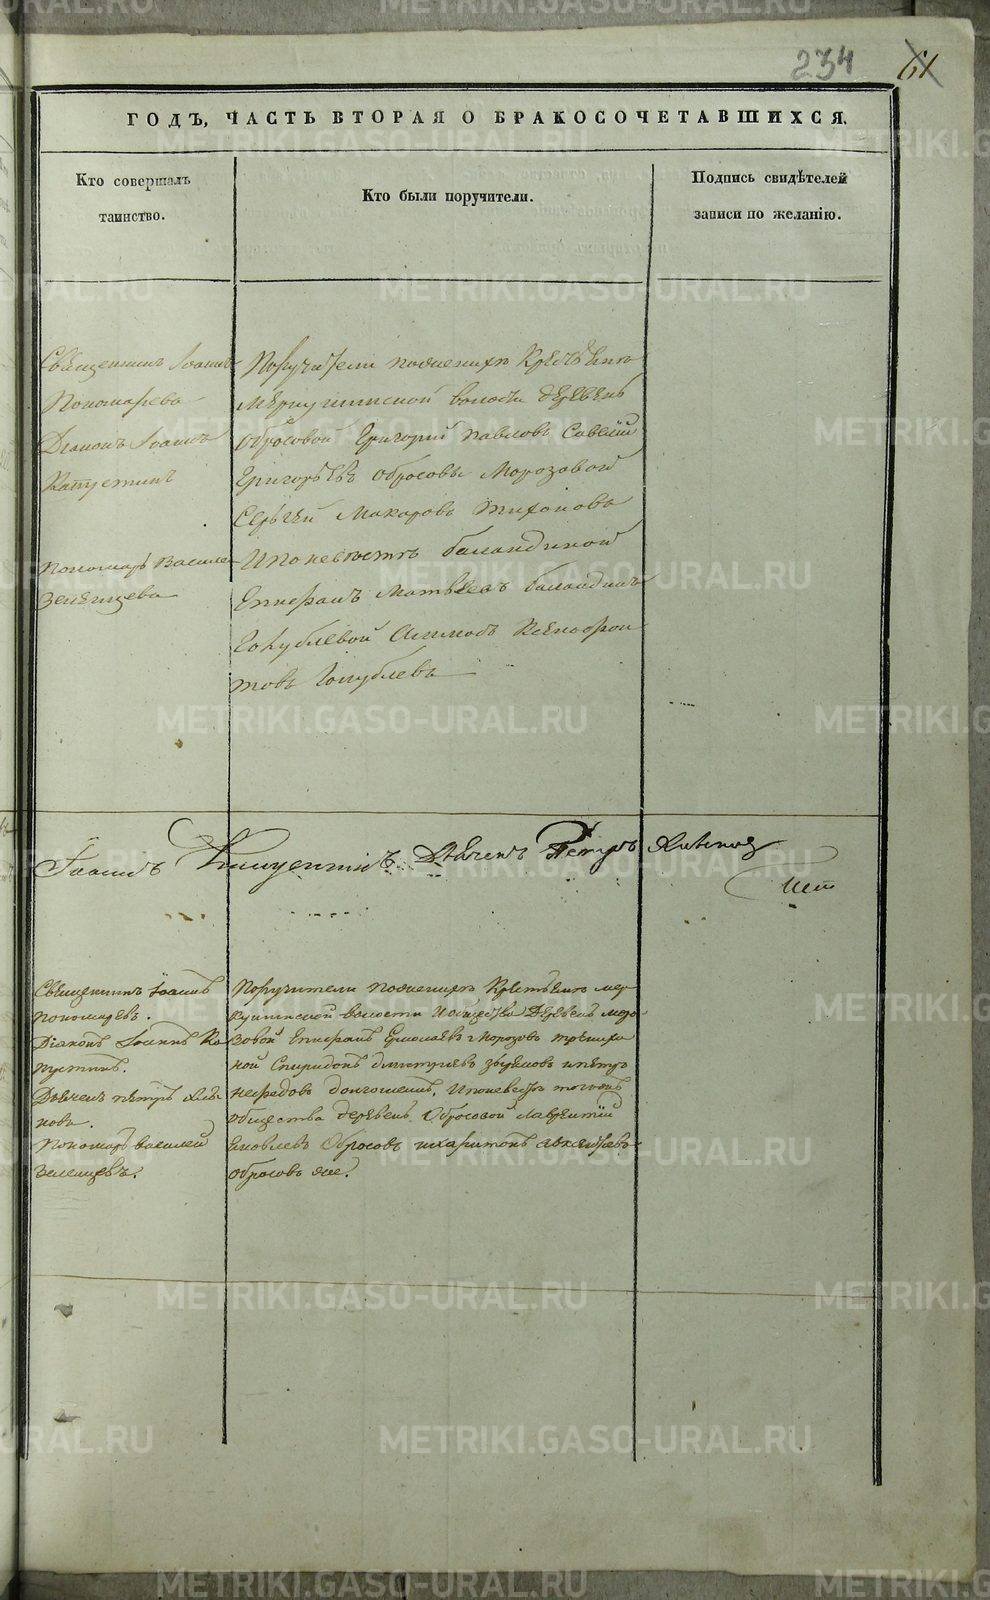 234 61
ГОДЪ, ЧАСТЬ ВТОРАЯ О БРАКОСОЧЕТАВШИХСЯ.
Кто совершалъ
таинство.
Кто были поручители.
Подпись свидѣтелей
записи по желанію.
Священникъ Іоаннъ
Пономарева
Діаконъ Іоаннъ
Капустинъ
Пономарь Василе
Зеленцева
Поручители по женихѣ Крестьяне
Меркушинской волости деревень
Обросовой Григорий Павловъ Савелій
Григорьевъ Обросовы Морозовой
Сергѣй Макаровъ Тихоновъ
И по невѣстѣ баландиной
Епифанъ Матвеевъ баландинъ
Голублевой Ксенофон
товъ Голублевъ
Іоаннъ Капустинъ. Дьячекъ Петръ
Священникъ Іоаннъ
Пономаревъ.
Діаконъ Іоаннъ Ка
пустинъ.
Дьячекъ петръ
новъ.
Пономарь василей
Зеленцевъ.
Поручители по женихѣ Крестьяне мер
кушинской волости деревень моро
зовой Епифанъ Ермолаевъ Морозовъ
ной Спиридонъ дмитриевъ и петръ
И по невестѣ
общества деревень Обросовой Лаврентій
Яковлевъ Обросовъ и харитонъ
обросовъ же.
METRIKI.GASO-URAL.RU